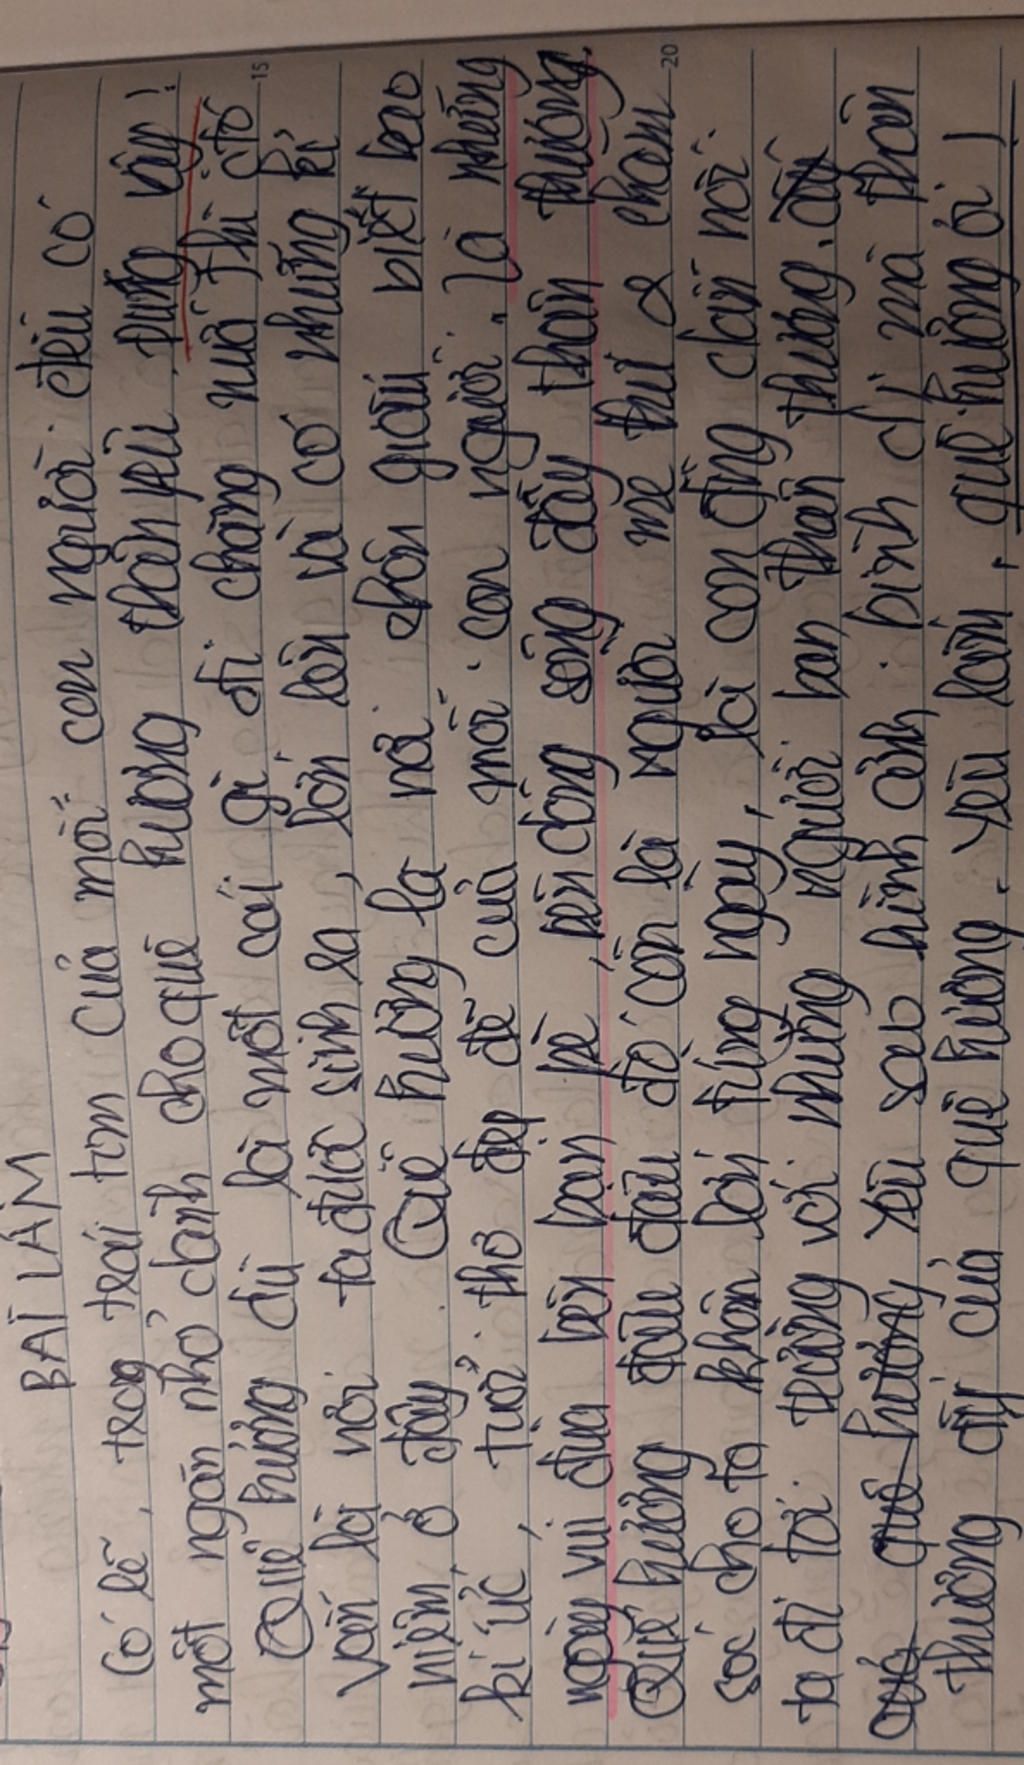 BÀI LÀM
Có lẽ, trong trái tim của mỗi con người đều có
một ngăn nhỏ dành cho quê hương thân yêu, đúng vậy!
Quê hương dù là một cái gì đi chăng nữa thì đó 15
vẫn là nơi ta được sinh ra, lớn lên và có những kỉ
niệm ở đây. Quê hương là nơi chôn giấu biết bao
kí ức, tuổi thơ đẹp đẽ của mỗi con người. Là những
ngày vui đùa bên bạn bè, bên dòng sông đầy thân thương.
Quê hương đâu đâu đó còn là người mẹ thứ 2 chăm 20
sóc cho ta khôn lớn từng ngày, là con đò dẫn lối
ta đi tới trường với những người bạn thân thương. ấy
quê hương yêu sao hình ảnh bình dị mà thân
thương ấy của quê hương. Yêu lắm, quê hương ơi!